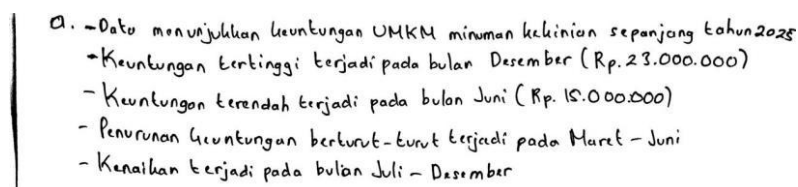 a. - Data menunjukkan keuntungan UMKM minuman kekinian sepanjang tahun 2025
- Keuntungan tertinggi terjadi pada bulan Desember (Rp. 23.000.000)
- Keuntungan terendah terjadi pada bulan Juni (Rp. 15.000.000)
- Penurunan keuntungan berturut-turut terjadi pada Maret - Juni
- Kenaikan terjadi pada bulan Juli - Desember